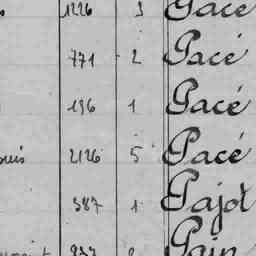 1226 3 Pacé
771 2 Pacé
196 1 Pacé
2126 5 Pacé
387 1 Pajot
Pain